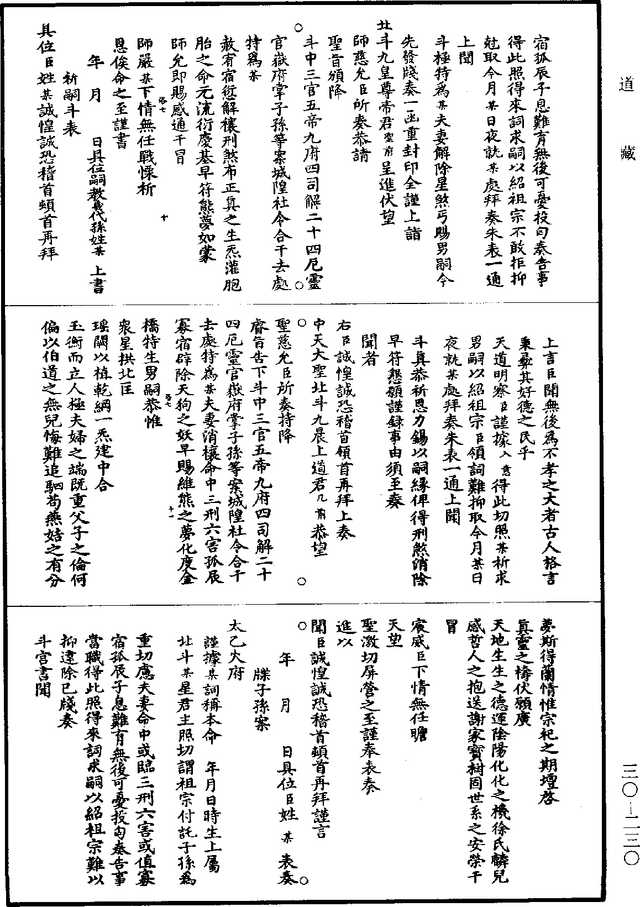 道藏
宿孤辰子息難有無後可憂投匄奏告事
得此照得來詞求嗣以紹祖宗不敢拒抑
尅取今月某日夜就某處拜奏朱表一通
上聞
斗極特為某夫妻解除星煞丐賜男嗣今
先發牋奏一函重封印全謹上詣
北斗九皇尊帝君聖前呈進伏望
師慈允臣所奏恭請
聖旨頒降
斗中三官五帝九府四司解二十四厄靈
官嶽府掌子孫等案城隍社令合干去處
特為某
赦宥宿愆解禳刑煞布正真之生炁灌胞
胎之命元流衍慶基早符熊夢如蒙
師允即賜感通干冒
師嚴某下情無任戰慄祈
恩俟命之至謹書
年 月 日具位嗣教幾代孫姓某上書
祈嗣斗表
具位臣姓某誠惶誠恐稽首頓首再拜
上言臣聞無後為不孝之大者古人格言
秉彞其好德之民乎
天道明察臣謹據入意得此切照某祈求
男嗣以紹祖宗臣領詞難抑取今月某日
夜就某處拜奏朱表一通上聞
斗真恭祈恩力錫以嗣緣俾得刑煞消除
早符懇願謹錄事由須至奏
聞者
右臣誠惶誠恐稽首頓首再拜上奏
中天大聖北斗九晨上道君几前恭望
聖慈允臣所奏特降
睿旨告下斗中三官五帝九府四司解二十
四厄靈官嶽府掌子孫等案城隍社令合干
去處特為某夫妻消禳命中三刑六害孤辰
寡宿辟除天狗之妖早賜維熊之夢化度金
橋特生男嗣恭惟
衆星拱北匡
瑤闕以植乾綱一炁建中合
玉衡而立人極夫婦之端旣重父子之倫何
偏以伯道之無兒悔難追駟苟燕姞之有分
夢斯得蘭情惟宗祀之期壇啓
眞靈之禱伏願廣
天地生生之德運陰陽化化之機徐氏麟兒
感哲人之抱送謝家寶樹固世系之安榮干
冒
宸威臣下情無任瞻
天望
聖激切屏營之至謹奉表奏
進以
聞臣誠惶誠恐稽首頓首再拜謹言
年 月 日具位臣姓某表奏
牒子孫案
太乙火府
謹據某詞稱本命 年月日時生上屬
北斗某星君主照切謂祖宗付託子孫為
重切慮夫妻命中或臨三刑六害或值寡
宿孤辰子息難有無後可憂投匄奏告事
當職得此照得來詞求嗣以紹祖宗難以
抑違除已牋奏
斗宮書聞
三〇—二三〇